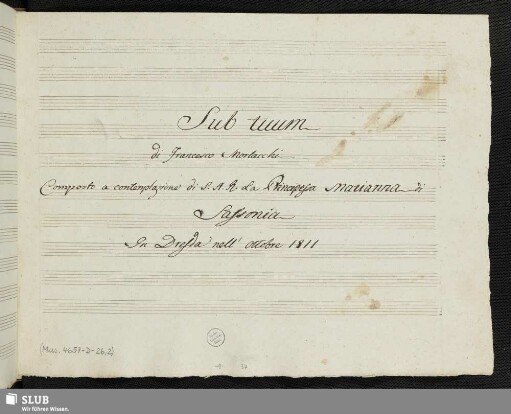 Sub tuum
di Francesco Morlacchi
Composto a contemplazione di S. A. R. La Principessa Marianna di
Sassonia
In Dresda nell' ottobre 1811
(Mus. 4657-D-26,2)
SLUB
Wir führen Wissen.